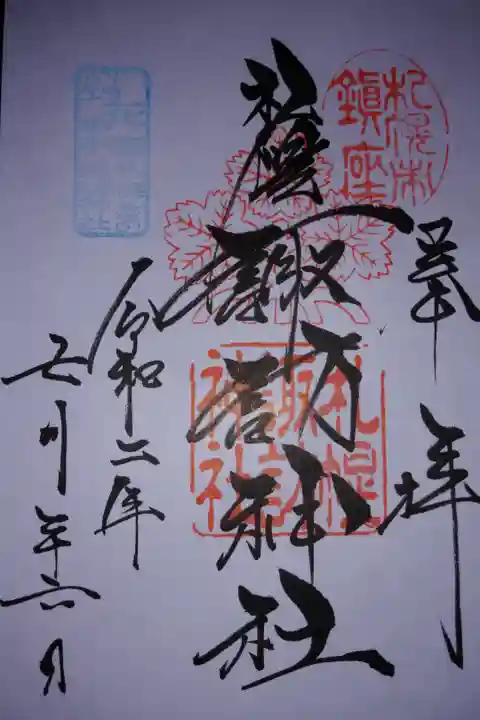 奉拝
札幌村鎮座
札幌諏訪神社
札幌諏訪神社
令和二年
七月六日